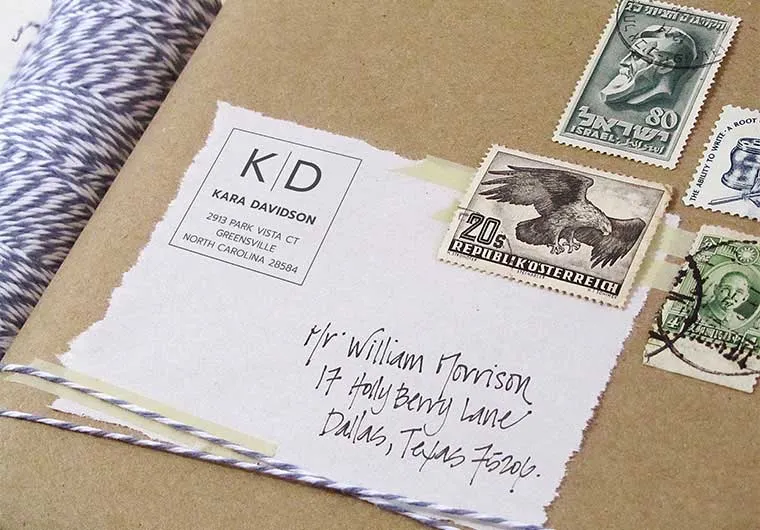 K|D
KARA DAVIDSON
2913 PARK VISTA CT
GREENSVILLE
NORTH CAROLINA 28584
Mr. William Morrison
17 Holly Berry Lane
Dallas, Texas 75206.
הקונגרס הציוני
80
ישראל
ISRAEL اسرائيل
20s
REPUBLIK ÖSTERREICH
THE ABILITY TO WRITE · A ROOT